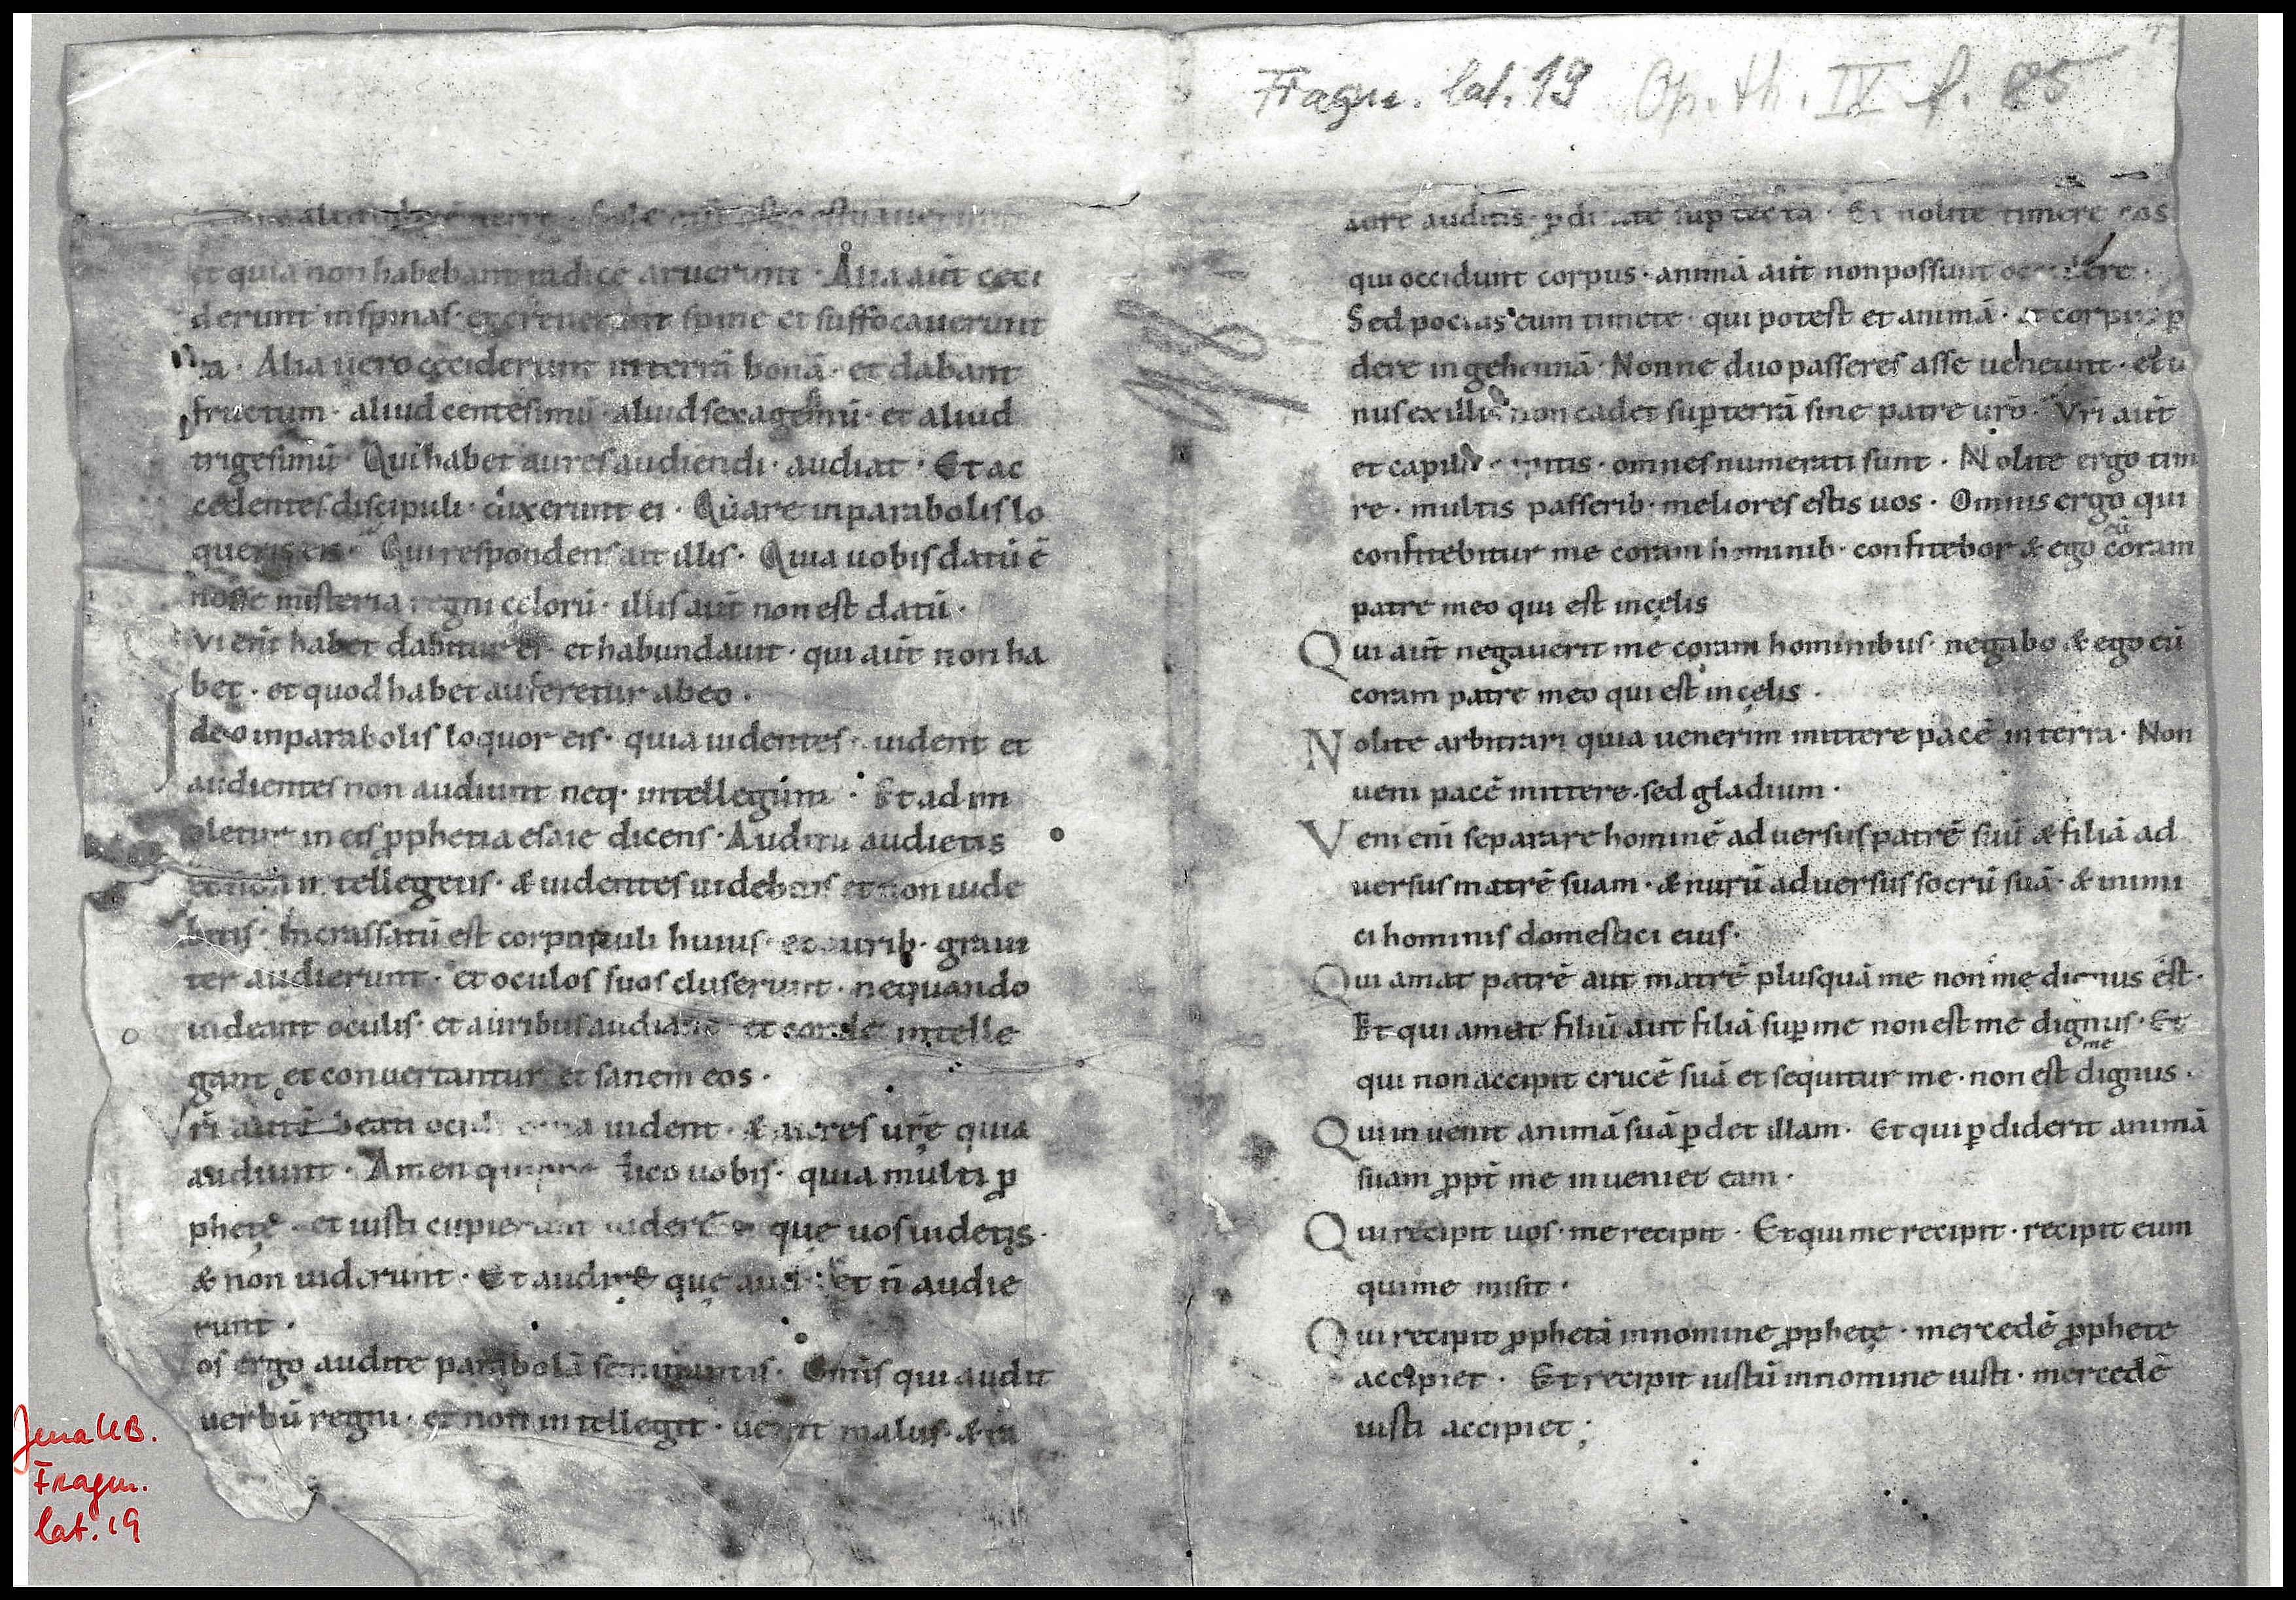 Fragm. lat. 19 Op. th. IV f. 85
et quia non habebant radicē aruerunt · Alia aut̄ ceci
derunt in spinas · et creuerunt spine et suffocauerunt
ea · Alia uero ceciderunt in terrā bonā · et dabant
fructum · aliud centesimū · aliud sexagesimū · et aliud
trigesimū · Qui habet aures audiendi · audiat · Et ac
cedentes discipuli · dixerunt ei · Quare in parabolis lo
queris eis · Qui respondens ait illis · Quia uobis datū ē
nosse misteria regni cęlorū · illis aut̄ non est datū ·
Vi eni habet dabitur ei · et habundauit · qui aut̄ non ha
bet · et quod habet auferetur ab eo ·
Ideo in parabolis loquor eis · quia uidentes uident et
audientes non audiunt neq · intellegunt · Et ad im
pletur in eis ꝓphetia esaie dicens · Auditu audietis
et non intellegetis · & uidentes uidebitis et non uide
bitis · Incrassatū est cor populi huius · et aurib · graui
ter audierunt · et oculos suos cluserunt · nequando
uideant oculis · et auribus audiant et corde intelle
gant et conuertantur et sanem eos ·
Vr̄i aut̄ beati oculi quia uident · & aures ur̄ę quia
audiunt · Amen quippe dico uobis · quia multi ꝓ
phetę et iusti cupierunt uidere quę uos uidetis ·
& non uiderunt · Et audire quę auditis et n̄ audie
runt ·
os ergo audite parabolā seminantis · Omis qui audit
uerbū regni · et non intellegit · uenit malus & ra
aure auditis · p̱dicate sup tecta · Et nolite timere eos
qui occidunt corpus · animā aut̄ non possunt occidere ·
Sed pocius eum timete · qui potest et animā · et corpus p̱
dere in gehennā · Nonne duo passeres asse ueneunt · et u
nus ex illis non cadet sup̱ terrā sine patre ur̄o · Vr̄i aut̄
et capilli capitis · omnes numerati sunt · Nolite ergo time
re · multis passerib · meliores estis uos · Omnis ergo qui
confitebitur me coram hominib · confitebor & ego eū coram
patre meo qui est in cęlis
Qui aut̄ negauerit me coram hominibus · negabo & ego eū
coram patre meo qui est in cęlis ·
Nolite arbitrari quia uenerim mittere pacē in terra · Non
ueni pacē mittere · sed gladium ·
Veni eni separare hominē aduersus patrē suū & filiā ad
uersus matrē suam · & nurū aduersus socrū suā · & inimi
ci hominis domestici eius ·
Qui amat patrē aut matrē plusquā me non me dignus est ·
Et qui amat filiū aut filiā sup̱ me non est me dignus · Et
qui non accipit crucē suā et sequitur me · non est me dignus ·
Qui inuenit animā suā p̱det illam · Et qui p̱diderit animā
suam ꝓpt̄ me inueniet eam ·
Qui recipit uos · me recipit · Et qui me recipit · recipit eum
qui me misit ·
Qui recipit ꝓphetā in nomine ꝓphetę · mercedē ꝓphete
accipiet · Et recipit iustū in nomine iusti · mercedē
iusti accipiet ;
Jena UB.
Fragm.
lat. 19